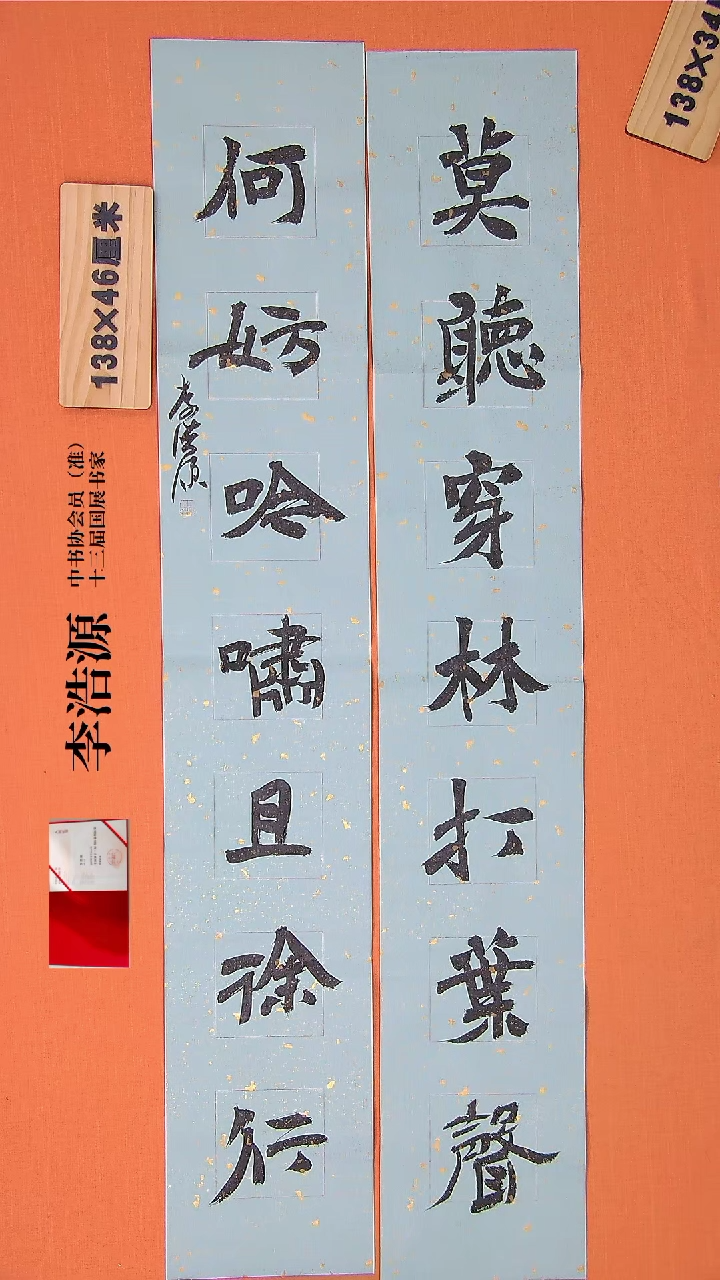 莫聽穿林打葉聲
何妨吟嘯且徐行
李浩源
138×46厘米
中书协会员（准）
十三届国展书家
李浩源
138×34